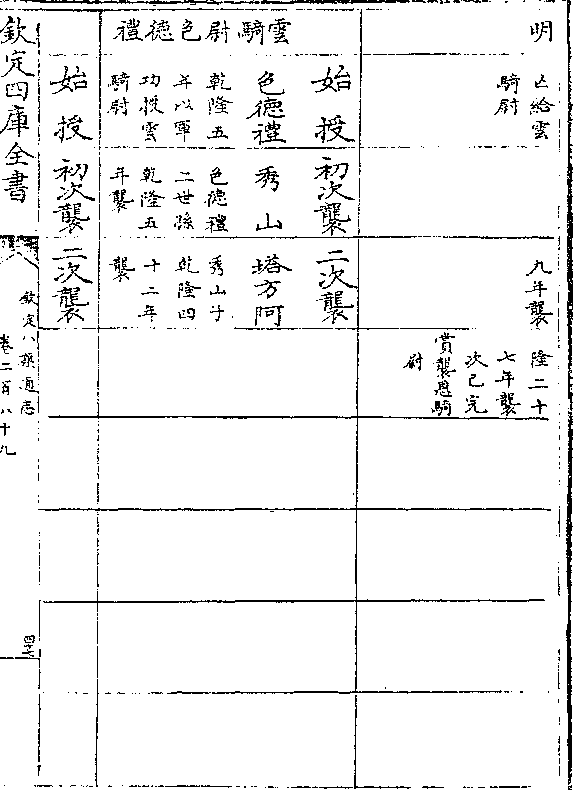 明
亡給雲
騎尉
九年襲
隆二十
七年襲
次已完
賞襲恩騎
尉
雲騎尉色德禮
始授
色德禮
乾隆五
年以軍
功授雲
騎尉
初次襲
秀山
色德禮
二世孫
乾隆五
年襲
二次襲
塔方阿
秀山子
乾隆四
十二年
襲
始授
初次襲
二次襲
欽定四庫全書
欽定八旗通志
卷二百八十九